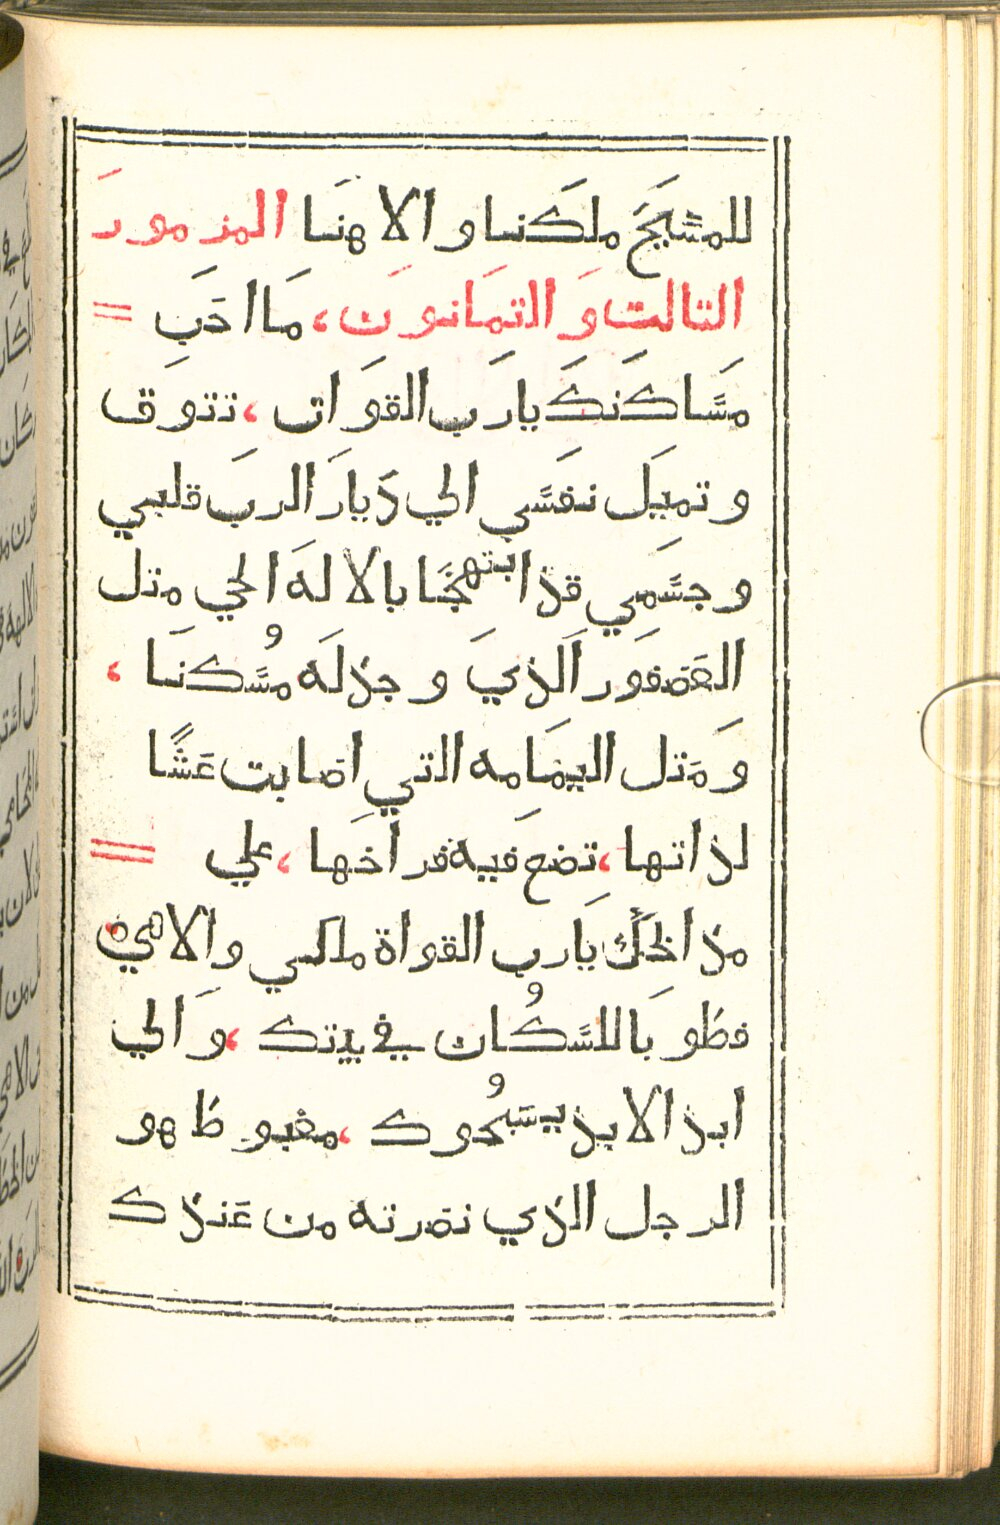 للمسَيحَ ملكَنا والاهنَا المزمورَ
التالت وَالتمَانونَ، مَا احَبَ
مسَاكنَكَ يارَبِ القوَات، تتوق
وتميَل نفسَي الي دَيارَالربَ قلبي
وجسَمِي قد ابتهجَا بالالهَ الحي متل
العَصفوَر الَذيَ وجد لهَ مُسَكنَا،
وَمَتل اليمَامه التي اصابت عَشًا
لداتها، تضَع فيه فراخَها، علي
مداخلك يَارب القواة ملكي والاهي
فطوبَا للسَكُان في بيتك، وَالي
ابد الابد يسَبحُوك، مغبوط هو
الرجل الذي نصرته من عَندك